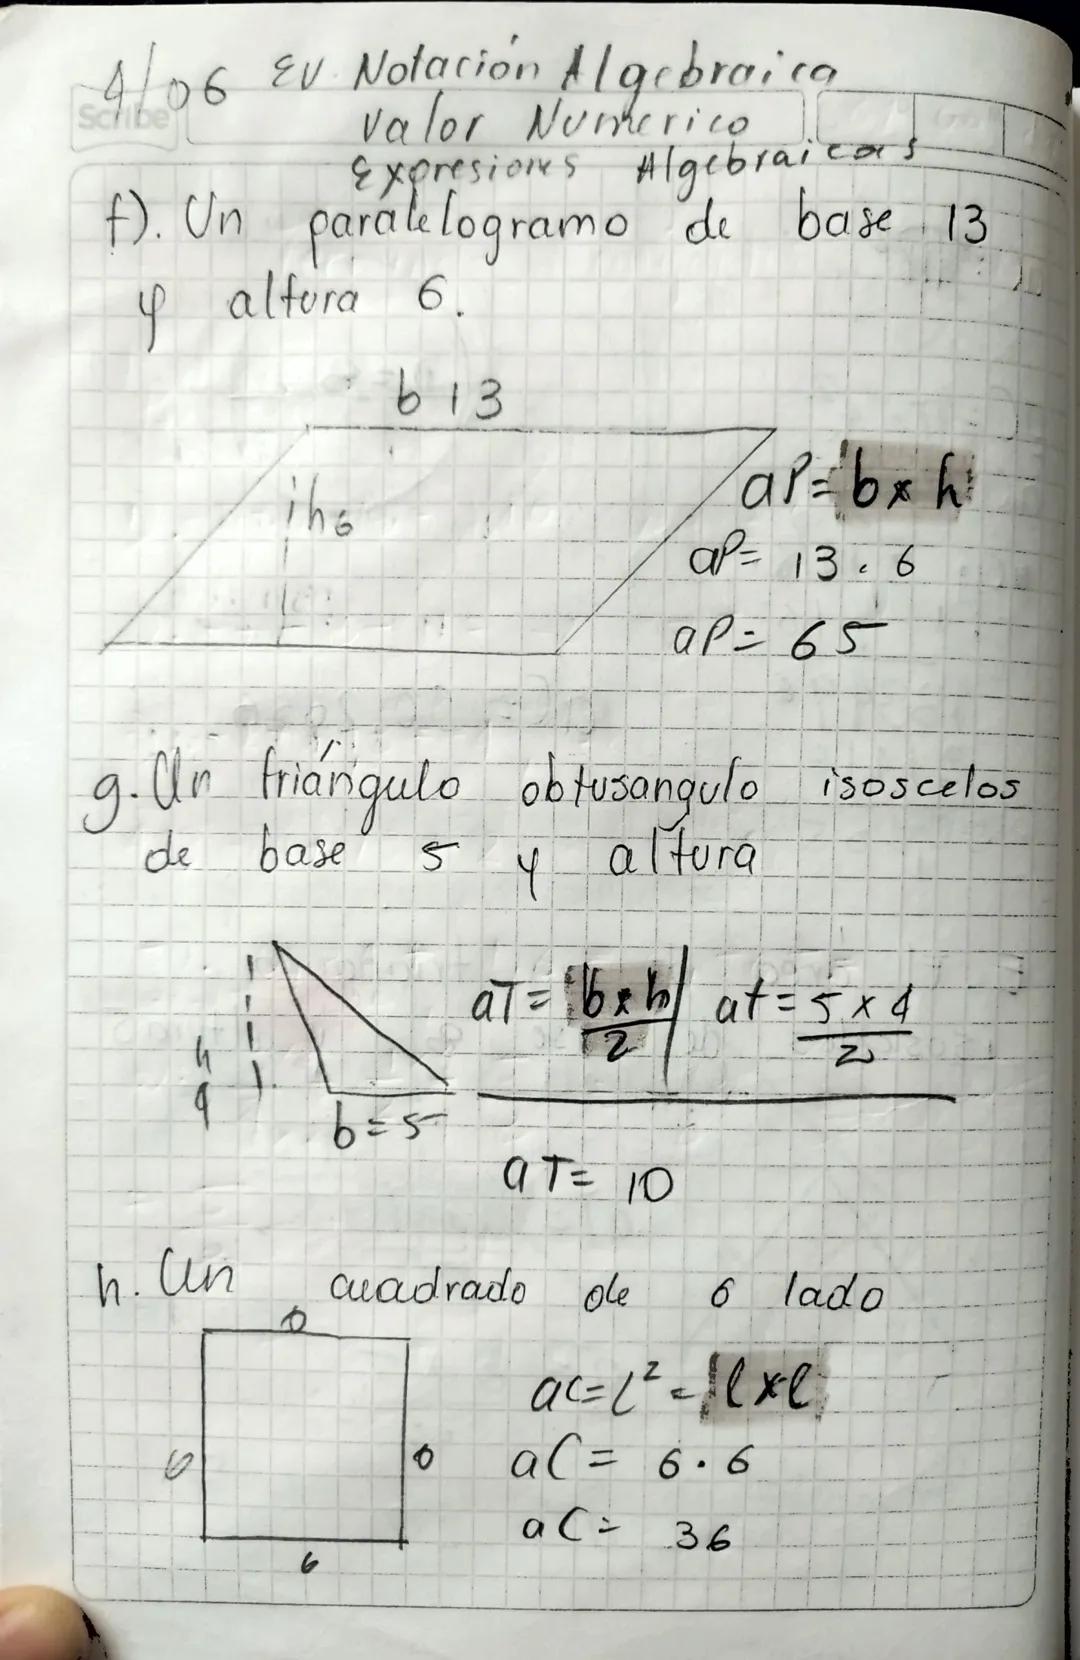 4/06 EV. Notación Algebraica
Scribe
Valor Numerico
Expresiones Algebraicas
f). Un paralelogramo de base 13
y altura 6.
b 13
h6
aP= b x h
aP= 13 . 6
aP= 65
g. Un triángulo obtusangulo isoscelos
de base 5 y altura
h
4
b=5
aT= b x h / 2
at= 5 x 4 / 2
aT= 10
h. Un cuadrado de 6 lado
6
aC=L²= l x l
6
6
aC= 6 . 6
aC= 36
6